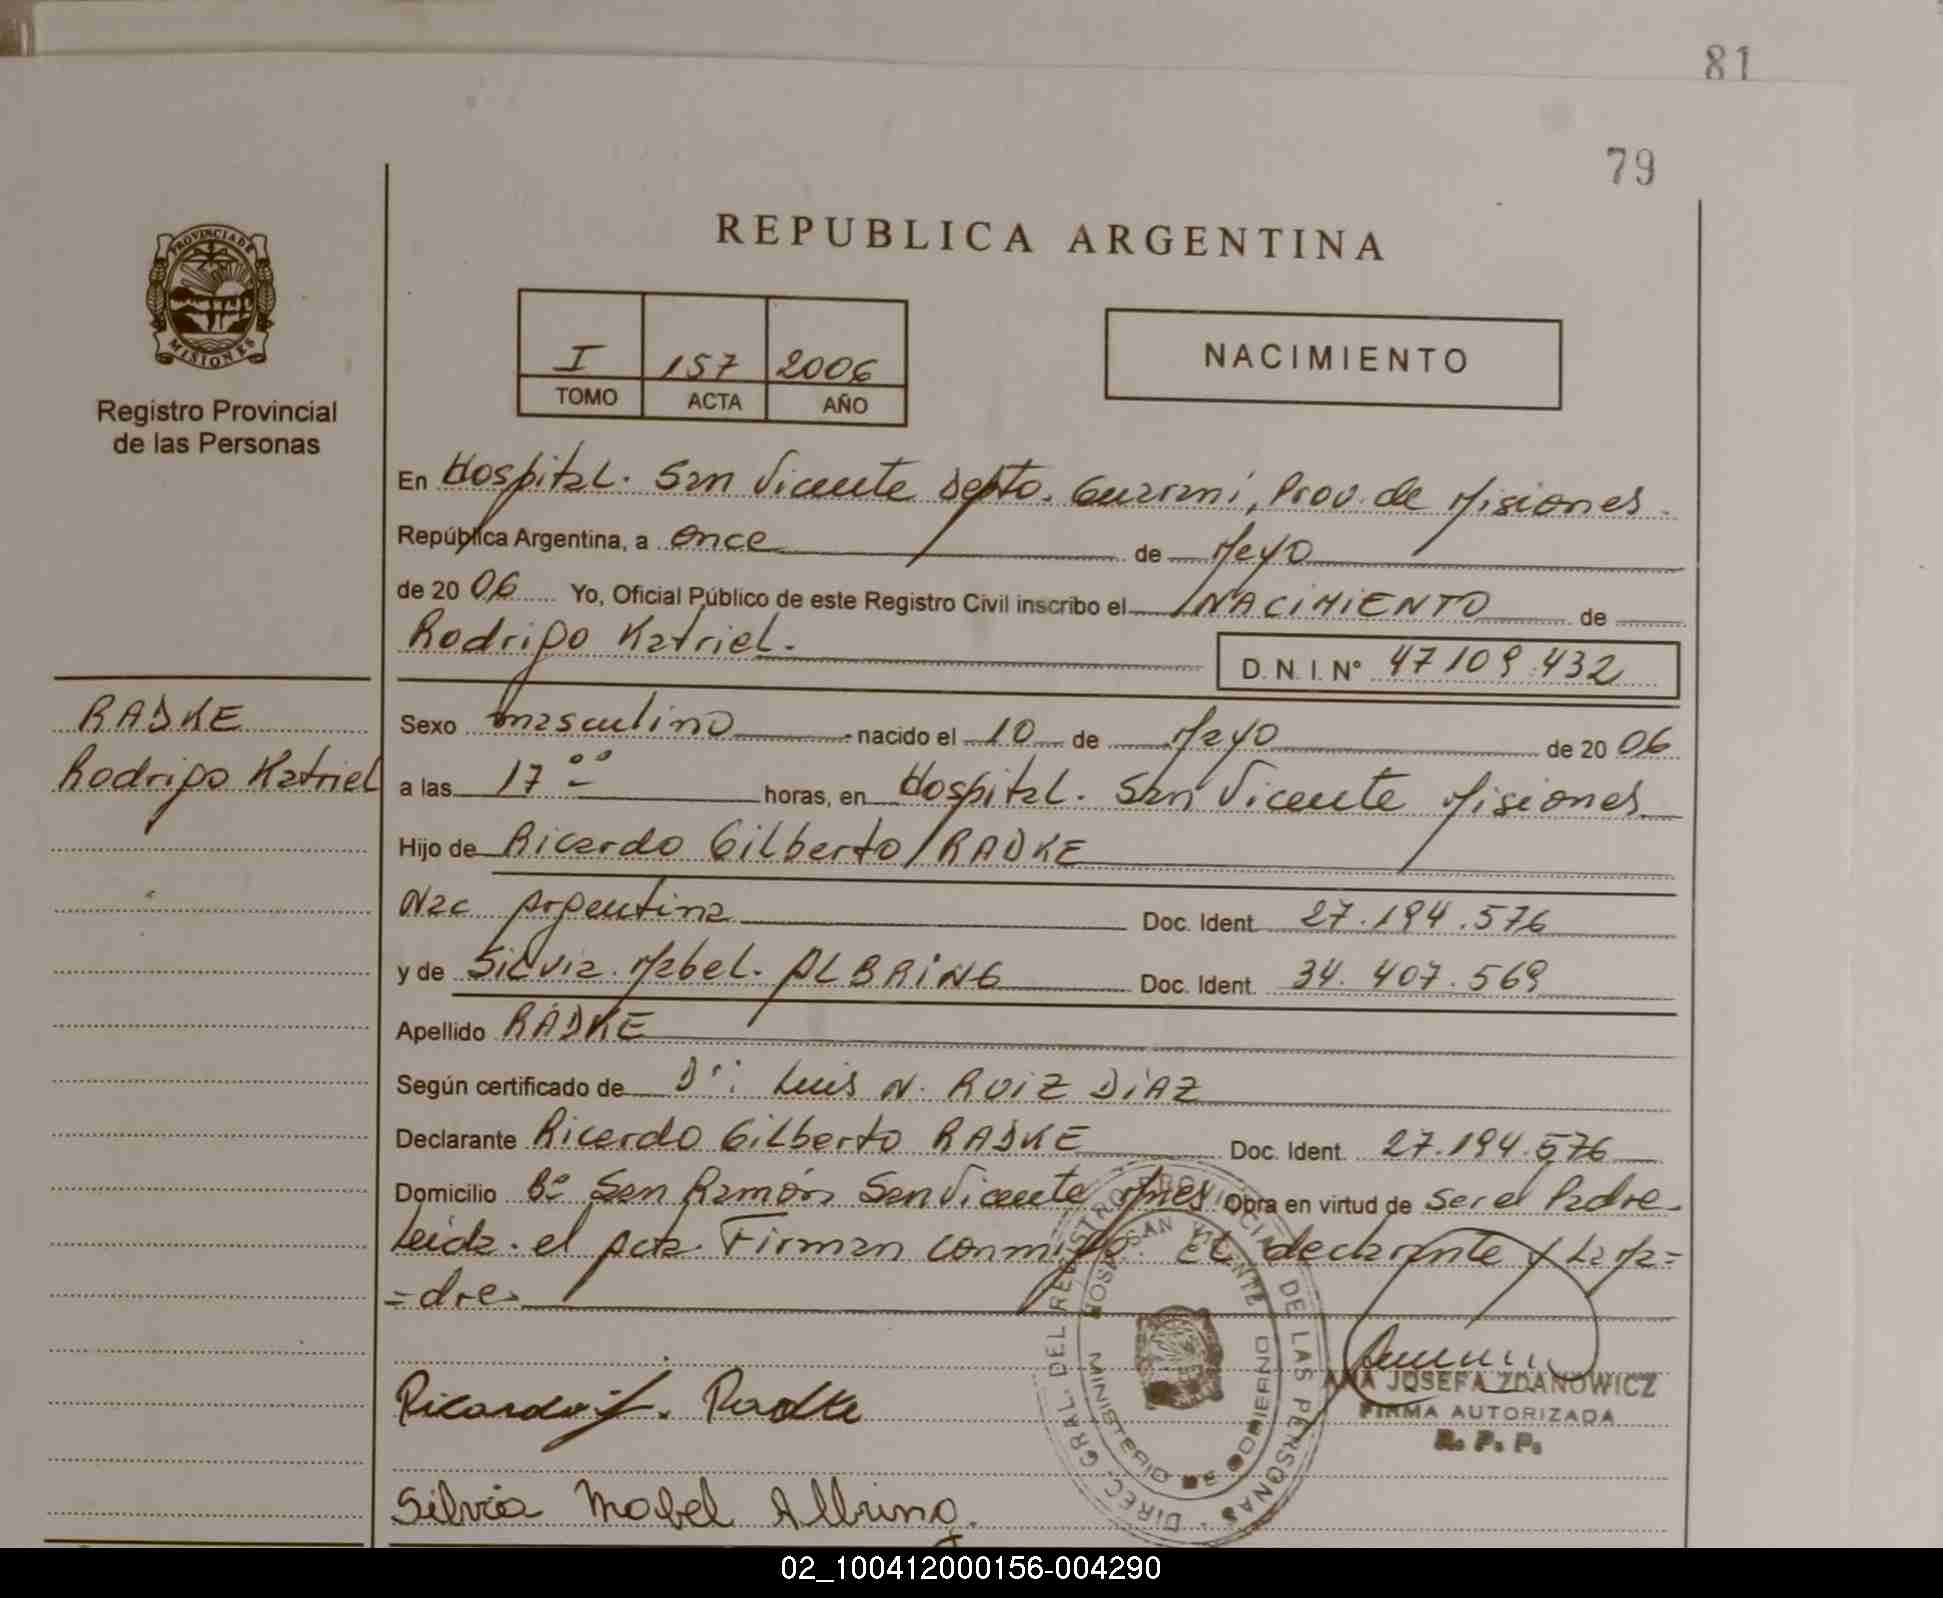 81
79
PROVINCIA DE
MISIONES
Registro Provincial
de las Personas
REPUBLICA ARGENTINA
I 157 2006
TOMO ACTA AÑO
NACIMIENTO
En Hospital. San Vicente Depto. Guarani, Prov. de Misiones.
República Argentina, a once de Mayo
de 20 06 Yo, Oficial Público de este Registro Civil inscribo el NACIMIENTO de
Rodrigo Katriel. D. N. I. Nº 47109.432
RADKE
Rodrigo Katriel
Sexo masculino nacido el 10 de Mayo de 20 06
a las 17 oo horas, en Hospital. San Vicente Misiones
Hijo de Ricardo Gilberto RADKE
Nac Argentina Doc. Ident. 27.194.576
y de Silvia Mabel. ALBRING Doc. Ident. 34.407.569
Apellido RADKE
Según certificado de Dr: Luis N. RUIZ DIAZ
Declarante Ricardo Gilberto RADKE Doc. Ident. 27.194.576
Domicilio Bº San Ramón San Vicente Mnes Obra en virtud de ser el Padre.
Leida el Acta Firman conmigo. El declarante y La Ma=
=dre.
Ricardo G. Radke
Silvia Mabel Albring.
DIREC. GRAL. DEL REGISTRO PROVINCIAL DE LAS PERSONAS
HOSP. SAN VICENTE
MINISTERIO DE GOBIERNO
ANA JOSEFA ZDANOWICZ
FIRMA AUTORIZADA
R. P. P.
02_100412000156-004290